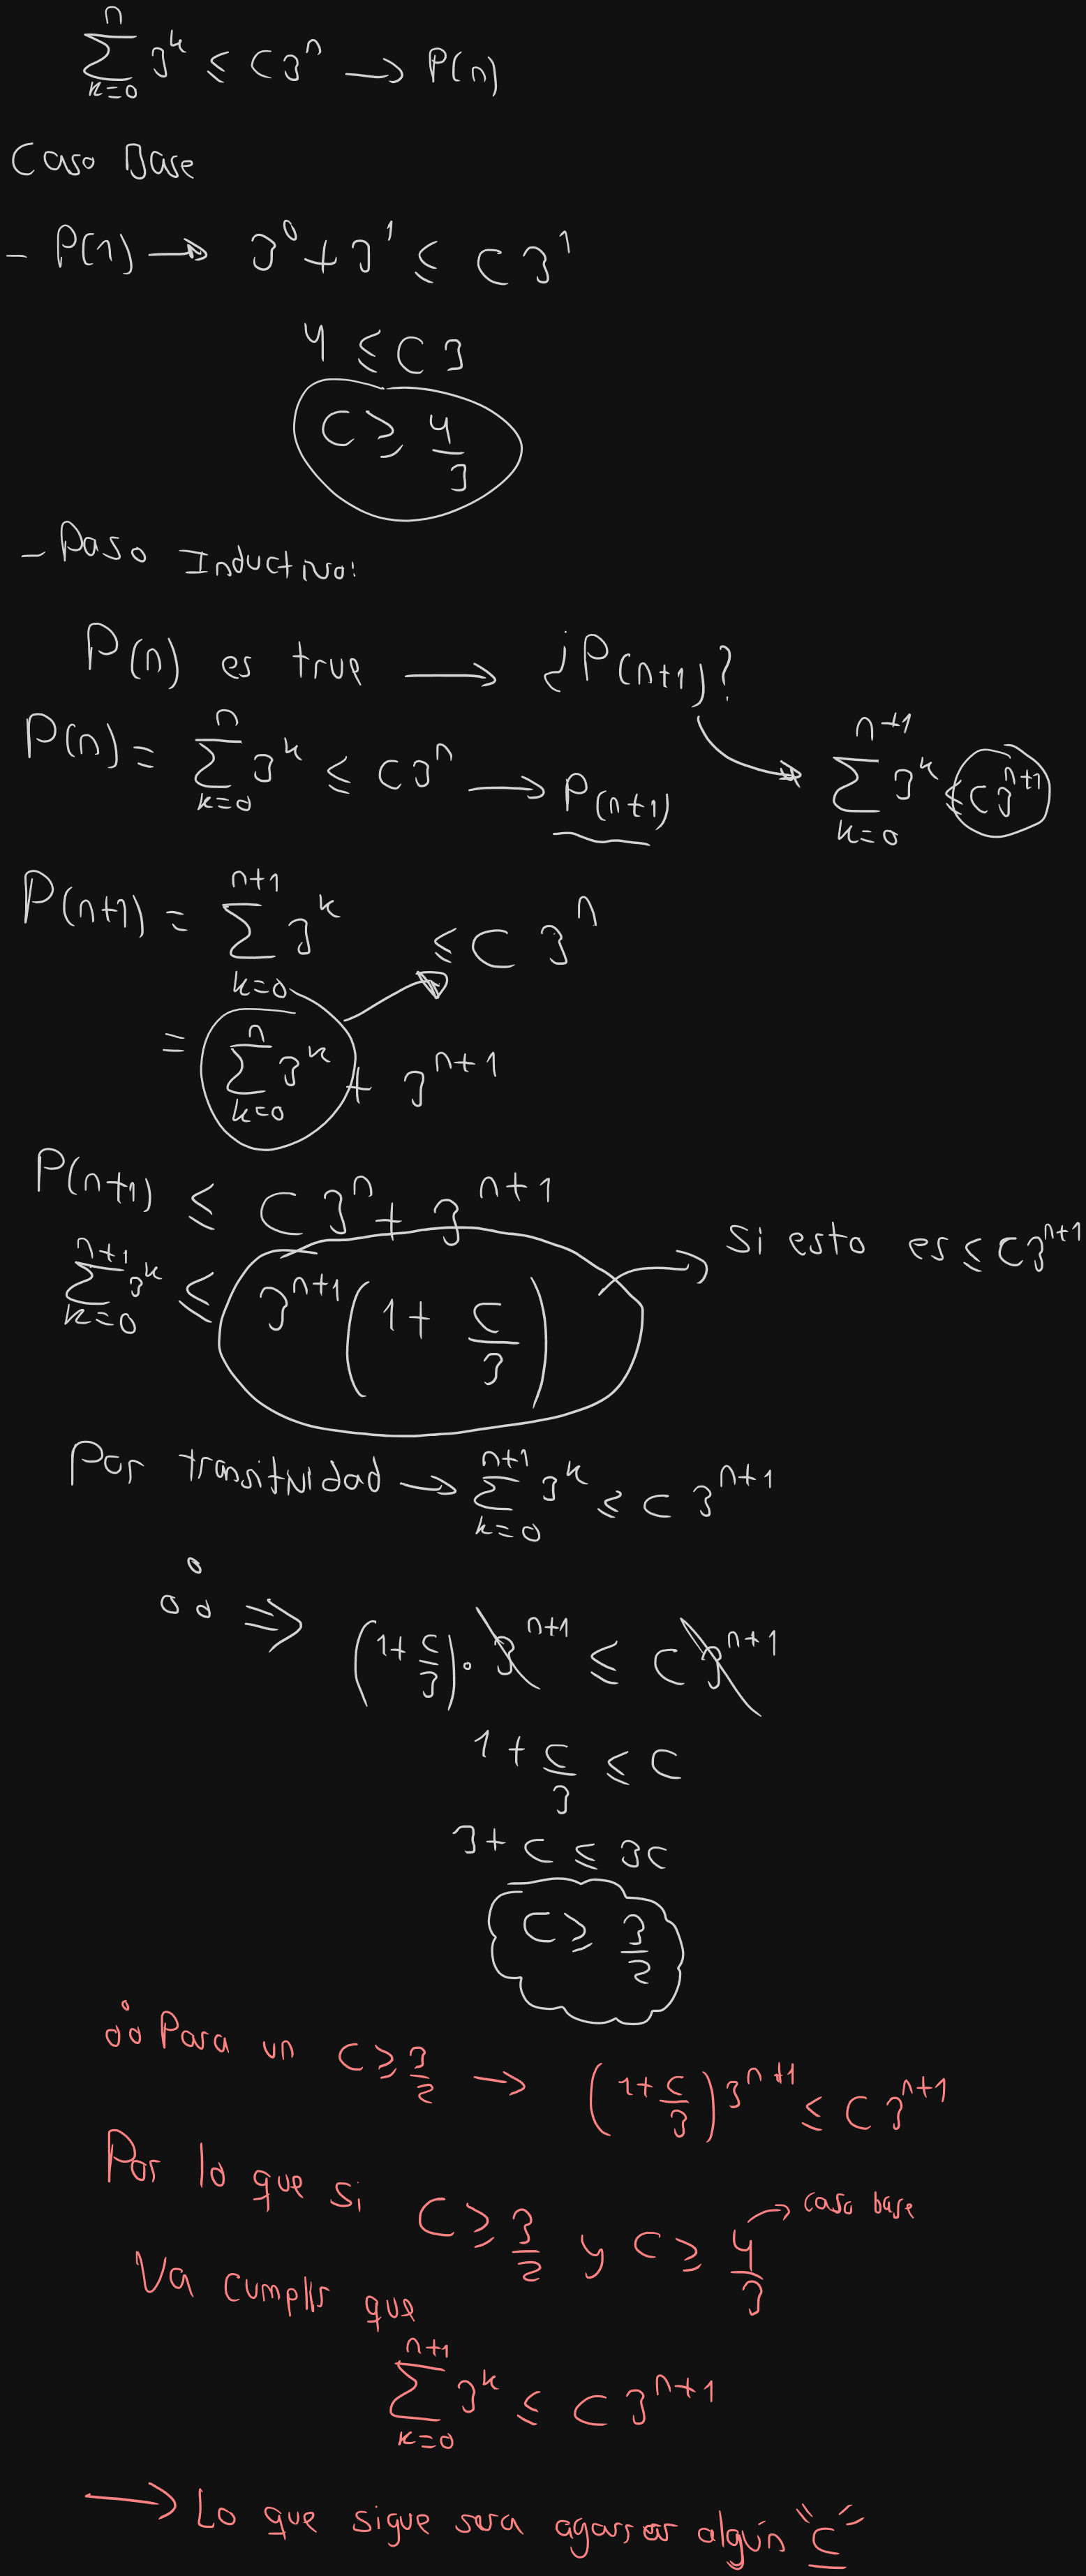 \sum_{k=0}^{n} 3^k ≤ C3^n → P(n)
Caso Base
- P(1) → 3^0 + 3^1 ≤ C 3^1
4 ≤ C3
C ≥ 4/3
- Paso Inductivo:
P(n) es true → ¿P(n+1)?
P(n) = \sum_{k=0}^{n} 3^k ≤ C3^n → P(n+1)
\sum_{k=0}^{n+1} 3^k ≤ C3^{n+1}
P(n+1) = \sum_{k=0}^{n+1} 3^k ≤ C 3^n
= \sum_{k=0}^{n} 3^k + 3^{n+1}
P(n+1) ≤ C3^n + 3^{n+1}
\sum_{k=0}^{n+1} 3^k ≤ 3^{n+1} (1 + C/3) → Si esto es ≤ C3^{n+1}
Por transitividad → \sum_{k=0}^{n+1} 3^k ≤ C 3^{n+1}
∴ ⇒ (1 + C/3) · 3^{n+1} ≤ C3^{n+1}
1 + C/3 ≤ C
3 + C ≤ 3C
C ≥ 3/2
∴ Para un C ≥ 3/2 → (1 + C/3) 3^{n+1} ≤ C 3^{n+1}
Por lo que si C ≥ 3/2 y C ≥ 4/3 → caso base
Va cumplir que
\sum_{k=0}^{n+1} 3^k ≤ C 3^{n+1}
→ Lo que sigue sera agarrar algún "C"